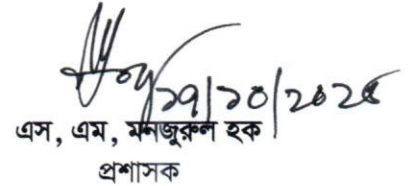 ১৭/১০/২০২৫
এস, এম, মনজুরুল হক
প্রশাসক